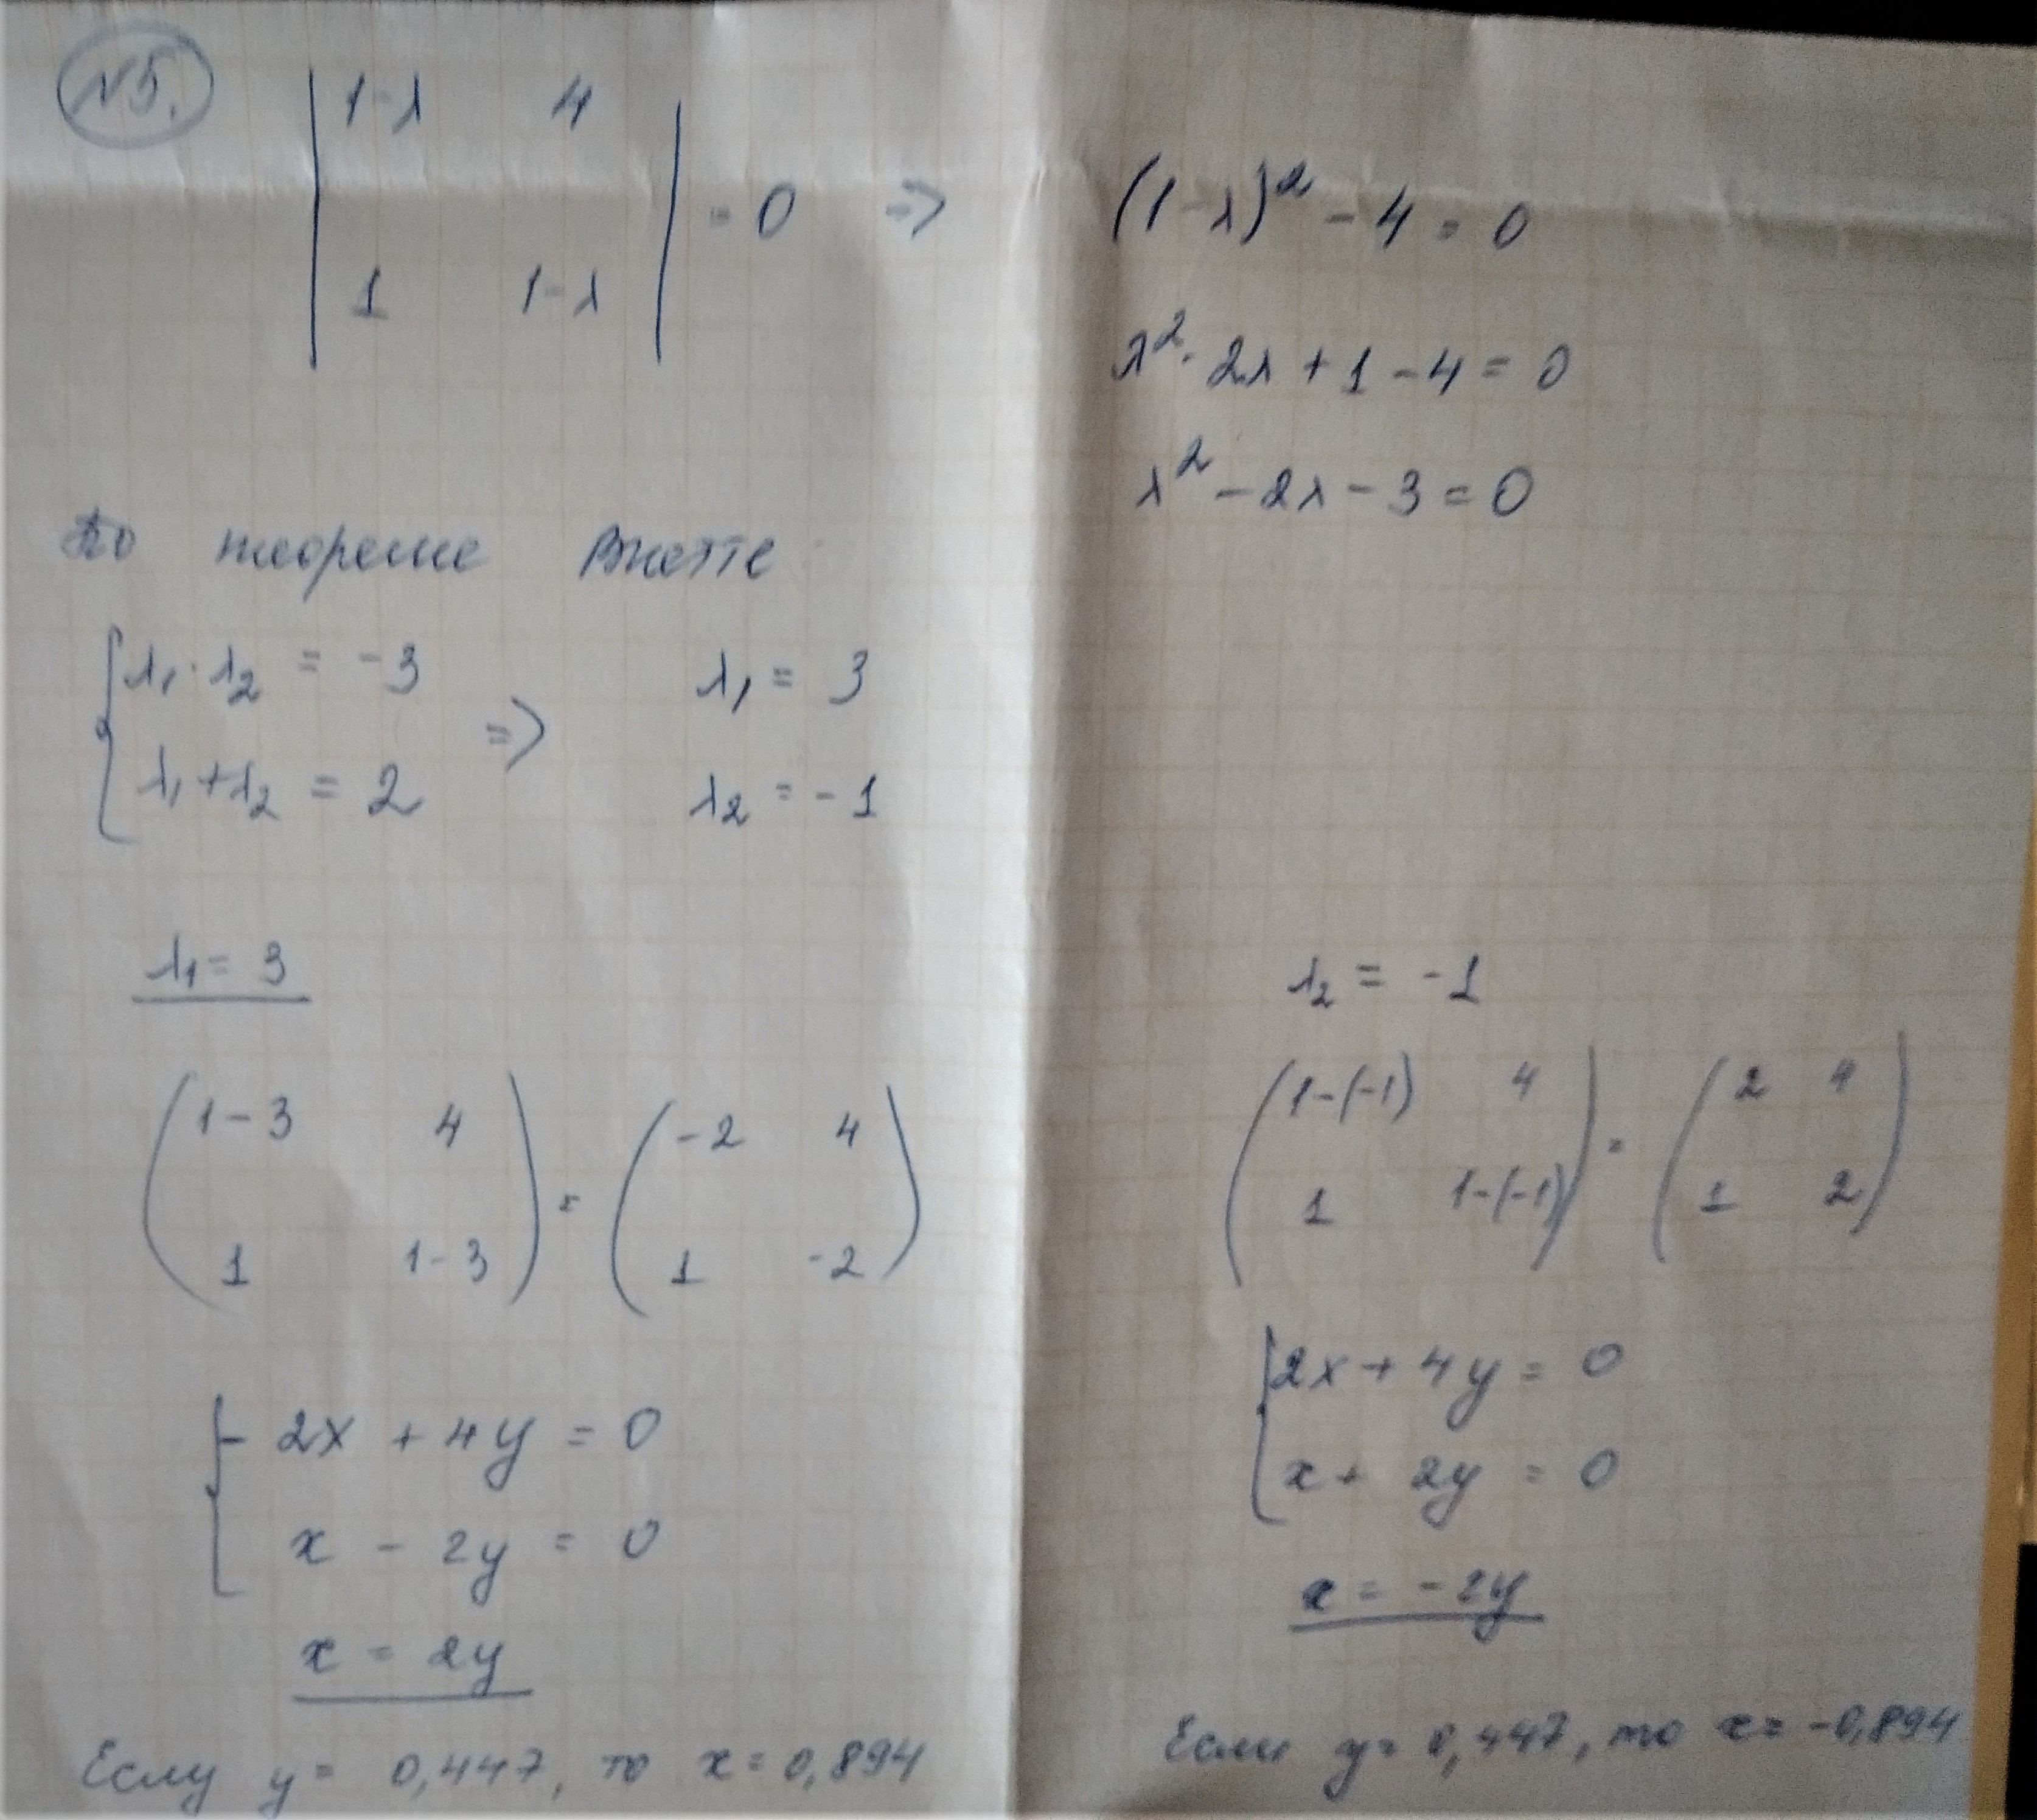 N5.
| 1-λ 4 |
| 1 1-λ | = 0 =>
(1-λ)² - 4 = 0
λ² - 2λ + 1 - 4 = 0
λ² - 2λ - 3 = 0
По теореме Виетте
{ λ₁ · λ₂ = -3
λ₁ + λ₂ = 2 =>
λ₁ = 3
λ₂ = -1
λ₁ = 3
( 1-3 4
1 1-3 ) = ( -2 4
1 -2 )
{ -2x + 4y = 0
x - 2y = 0
x = 2y
Еслу y = 0,447, то x = 0,894
λ₂ = -1
( 1-(-1) 4
1 1-(-1) ) = ( 2 4
1 2 )
{ 2x + 4y = 0
x + 2y = 0
x = -2y
Если y = 0,447, то x = -0,894